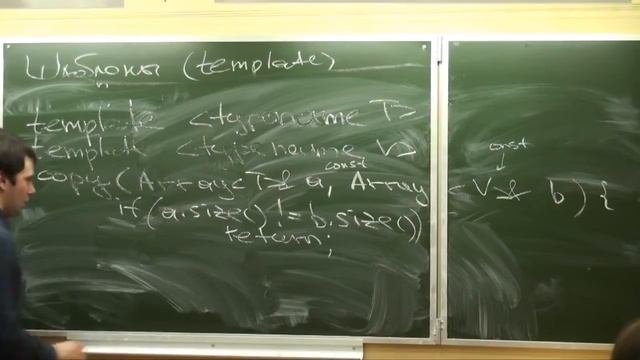 Шаблоны (template)
template <typename T>
template <typename V>
const
const
copy(Array<T>& a, Array<V>& b) {
if (a.size() != b.size())
return;